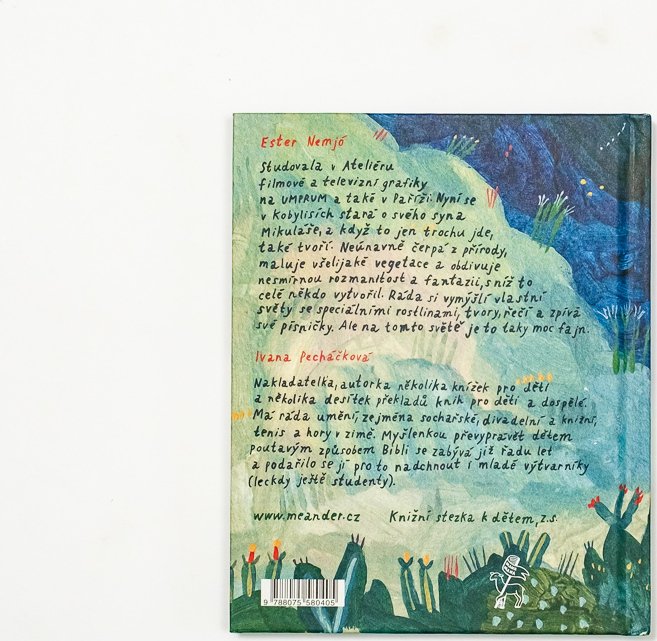 Ester Nemjó
Studovala v Ateliéru
filmové a televizní grafiky
na UMPRUM a také v Paříži. Nyní se
v Kobylisích stará o svého syna
Mikuláše, a když to jen trochu jde,
také tvoří. Neúnavně čerpá z přírody,
maluje všelijaké vegetace a obdivuje
nesmírnou rozmanitost a fantazii, s níž to
celé někdo vytvořil. Ráda si vymýšlí vlastní
světy se speciálními rostlinami, tvory, řečí a zpívá
své písničky. Ale na tomto světě je to taky moc fajn.
Ivana Pecháčková
Nakladatelka, autorka několika knížek pro děti
a několika desítek překladů knih pro děti a dospělé.
Má ráda umění, zejména sochařské, divadelní a knižní,
tenis a hory v zimě. Myšlenkou převyprávět dětem
poutavým způsobem Bibli se zabývá již řadu let
a podařilo se jí pro to nadchnout i mladé výtvarníky
(leckdy ještě studenty).
www.meander.cz Knižní stezka k dětem, z.s.
9 788075 580405